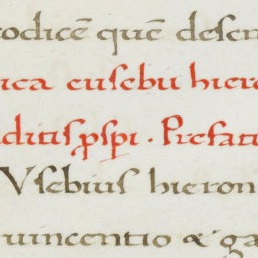 codicē quē descr
ica eusebii hiero
ditis ꝓsꝑi. Prefati
Vsebius hieron
uincentio & ga